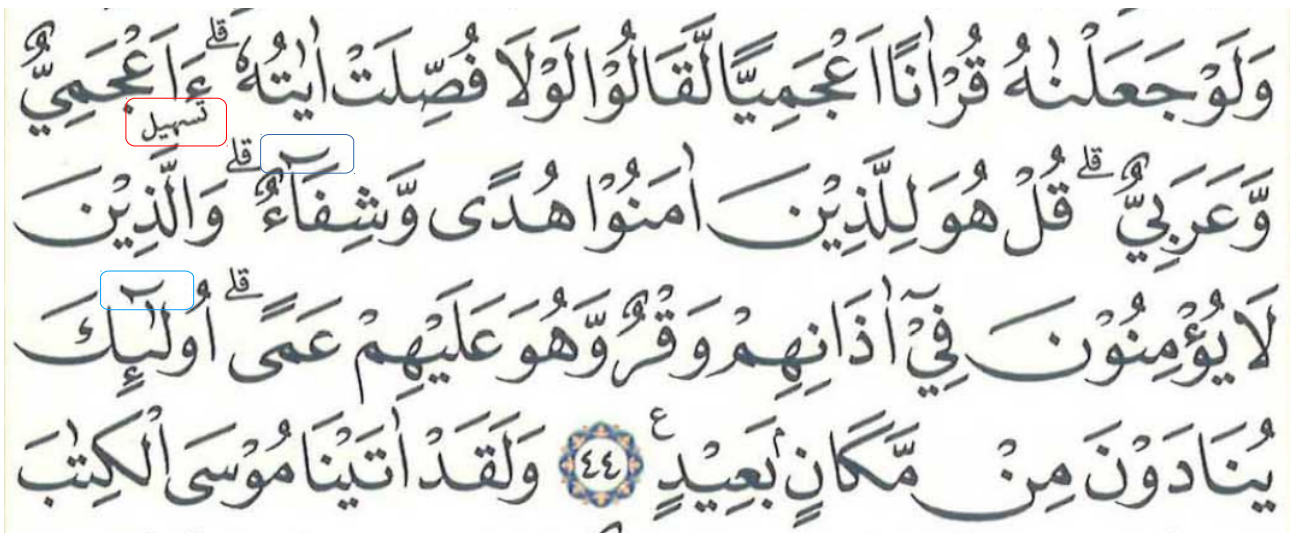 وَلَوْ جَعَلْنٰهُ قُرْاٰنًا اَعْجَمِيًّا لَّقَالُوْا لَوْلَا فُصِّلَتْ اٰيٰتُهٗ ۗ ءَاَعْجَمِيٌّ
تسهيل
وَّعَرَبِيٌّ ۗ قُلْ هُوَ لِلَّذِيْنَ اٰمَنُوْا هُدًى وَّشِفَاۤءٌ ۗ وَالَّذِيْنَ
لَا يُؤْمِنُوْنَ فِيْٓ اٰذَانِهِمْ وَقْرٌ وَّهُوَ عَلَيْهِمْ عَمًى ۗ اُولٰۤىِٕكَ
يُنَادَوْنَ مِنْ مَّكَانٍۢ بَعِيْدٍ ࣖ ٤٤ وَلَقَدْ اٰتَيْنَا مُوْسَى الْكِتٰبَ